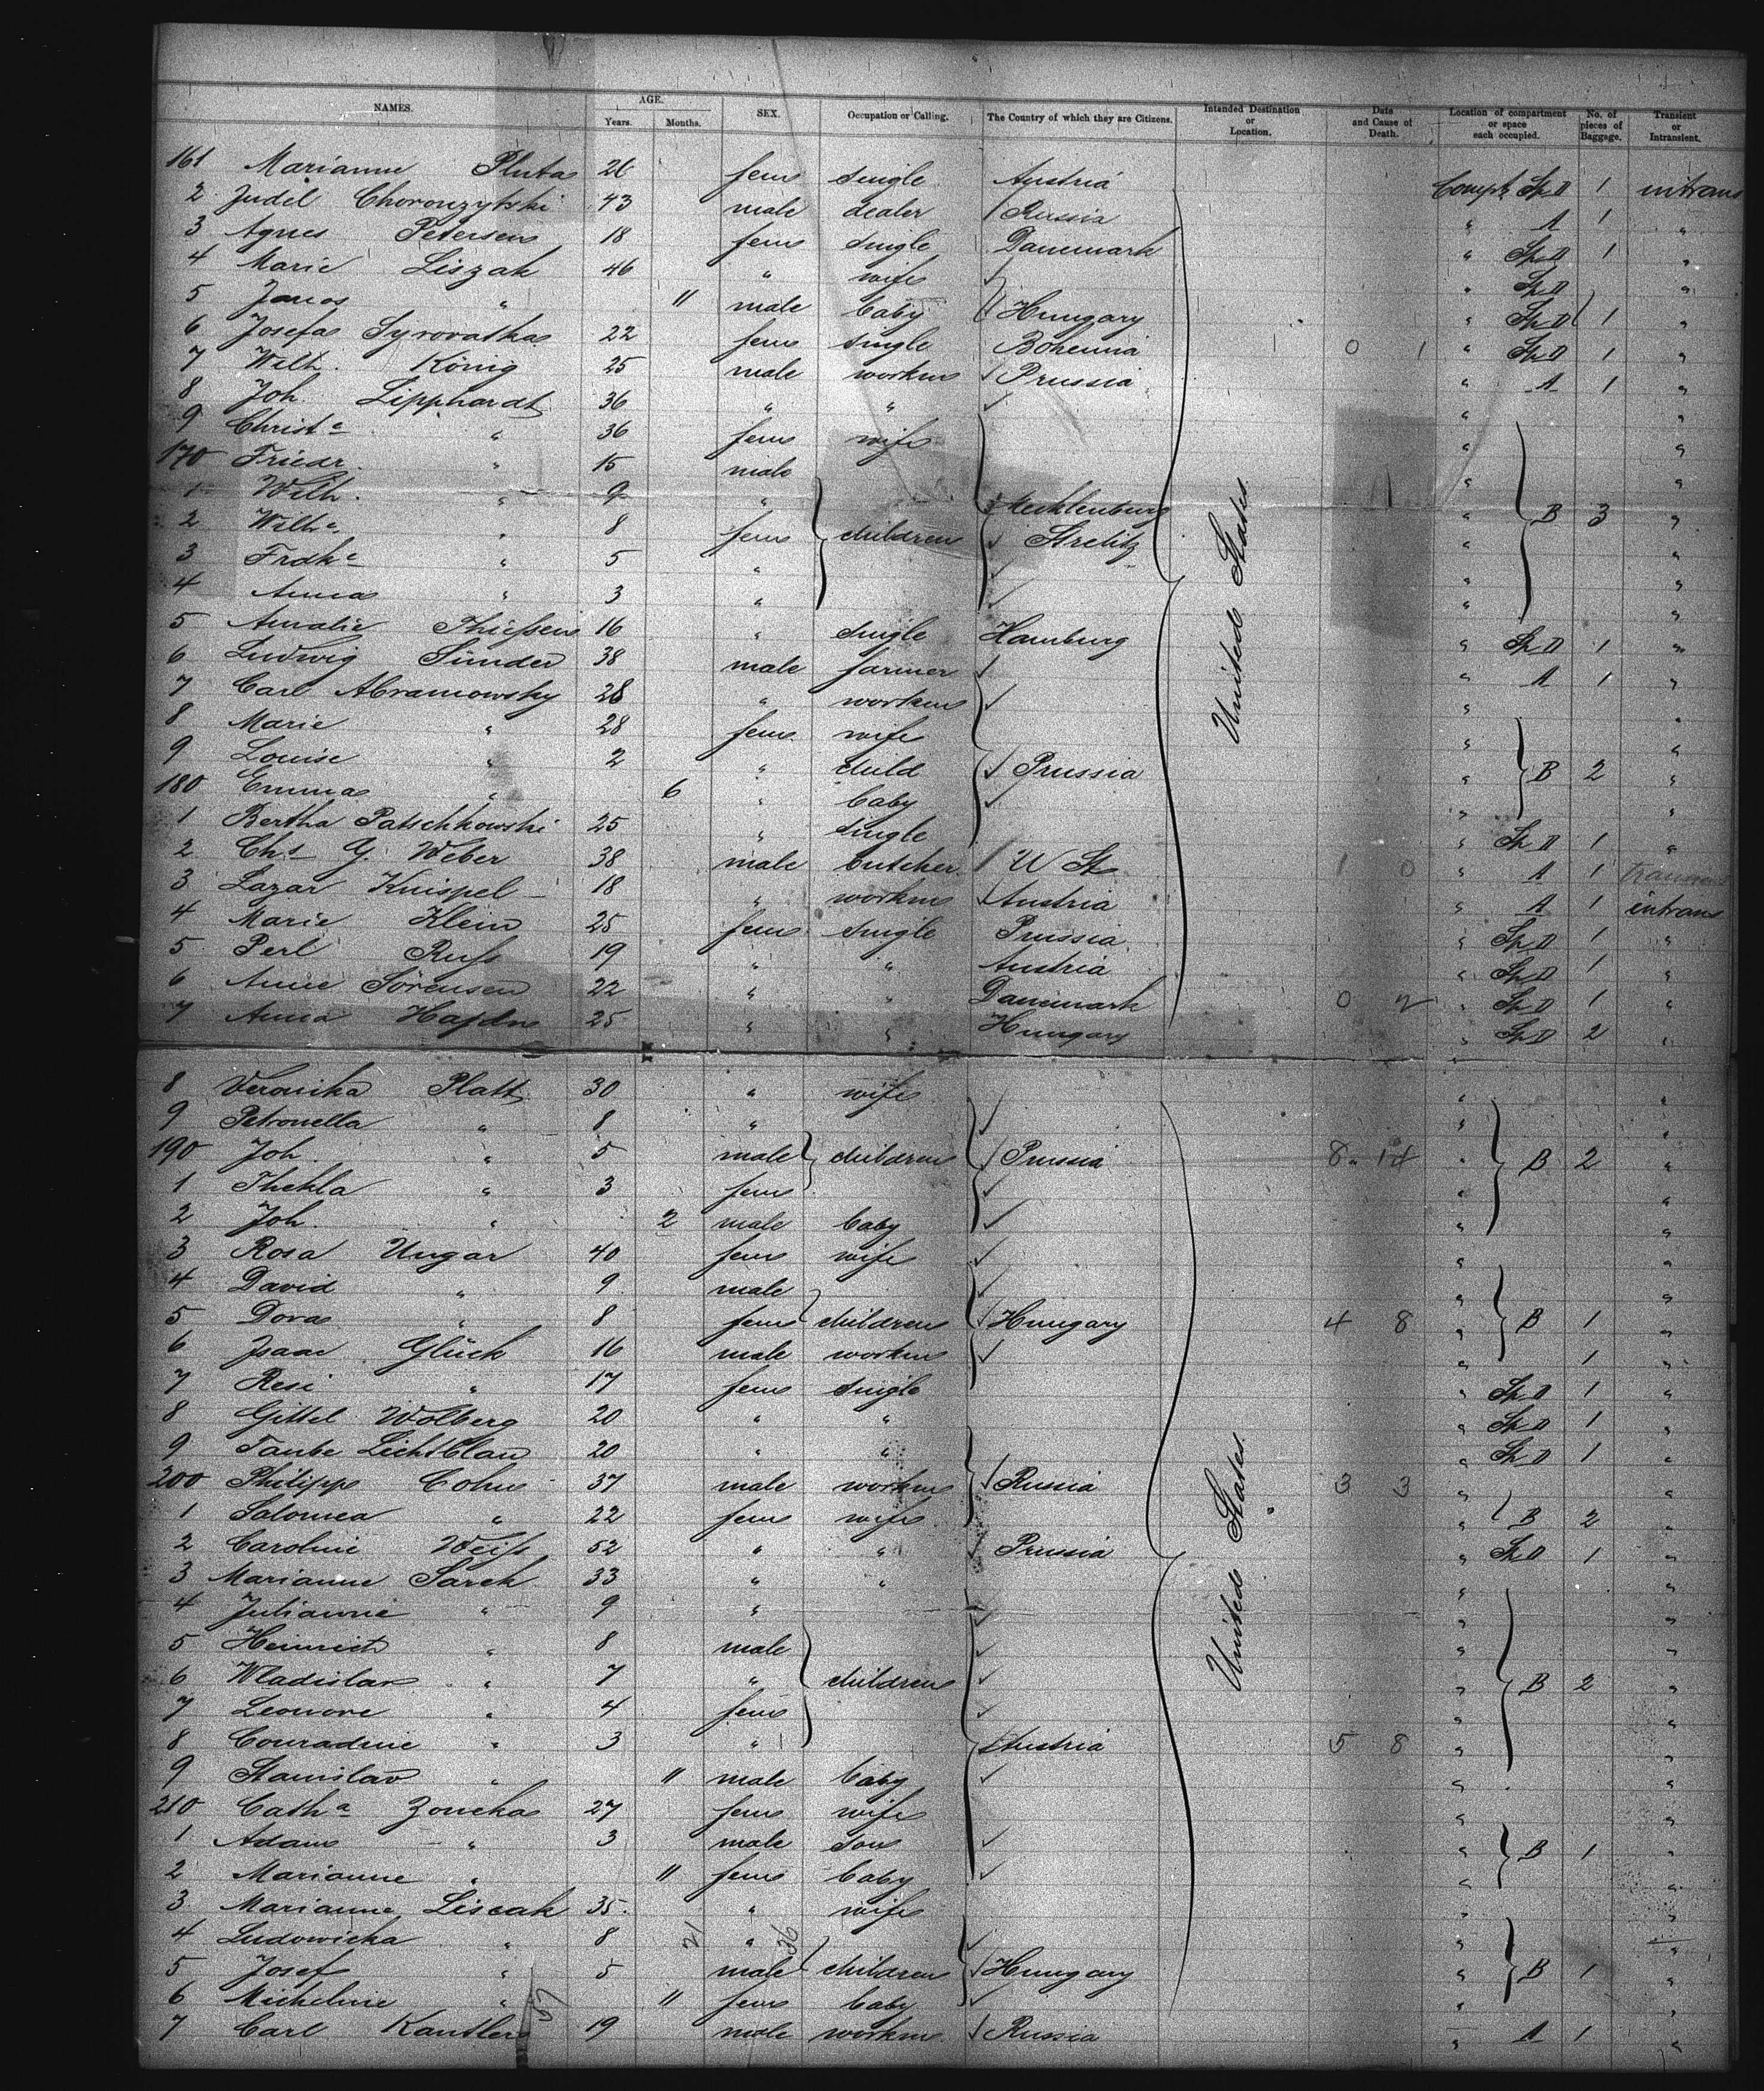 NAMES. AGE. Years. Months. SEX. Occupation or Calling. The Country of which they are Citizens. Intended Destination or Location. Date and Cause of Death. Location of compartment or space each occupied. No. of pieces of Baggage. Transient or Intransient.
161 Marianne Pluta 26 fem single Austria Compt Sp D 1 intrans
2 Judel Choronzytski 43 male dealer Russia " A 1 "
3 Agnes Petersen 18 fem single Danemark " Sp D 1 "
4 Marie Liszak 46 " wife " Sp D "
5 Janos " 11 male baby Hungary " Sp D 1 "
6 Josefa Syrovatka 22 fem single Bohemia 0 1 " Sp D 1 "
7 Wilh. König 25 male workm Prussia " A 1 "
8 Joh. Lipphardt 36 " " " "
9 Christe " 36 fem wife " "
170 Friedr. " 15 male " "
1 Wilh. " 9 " Mecklenburg " B 3 "
2 Wilhe " 8 fem children Strelitz " "
3 Frdke " 5 " " "
4 Anna " 3 " " "
5 Amalie Thießen 16 " single Hamburg " Sp D 1 "
6 Ludwig Sünder 38 male farmer " A 1 "
7 Carl Abramowsky 28 " workm " "
8 Marie " 28 fem wife " "
9 Louise " 2 " child Prussia " B 2 "
180 Emma " 6 " baby " "
1 Bertha Patschkowski 25 " single " Sp D 1 "
2 Chs G. Weber 38 male butcher U St 1 0 " A 1 trans
3 Lazar Knispel 18 " workm Austria " A 1 intrans
4 Marie Klein 25 fem single Prussia " Sp D 1 "
5 Perl Ruß 19 " " Austria " Sp D 1 "
6 Anne Sörensen 22 " " Danemark 0 2 " Sp D 1 "
7 Anna Hajdn 25 " " Hungary " Sp D 2 "
United States.
8 Veronika Platt 30 " wife " "
9 Petronella " 8 " " "
190 Joh. " 5 male children Prussia 8 14 " B 2 "
1 Thekla " 3 fem " "
2 Joh. " 2 male baby " "
3 Rosa Ungar 40 fem wife " "
4 David " 9 male " "
5 Dora " 8 fem children Hungary 4 8 " B 1 "
6 Isaac Glück 16 male workm " 1 "
7 Resi " 17 fem single " Sp D 1 "
8 Gittel Wolberg 20 " " " Sp D 1 "
9 Taube Lichtblau 20 " " " Sp D 1 "
200 Philipp Cohn 37 male workm Russia 3 3 " "
1 Salomea " 22 fem wife " B 2 "
2 Caroline Weiß 52 " " Prussia " Sp D 1 "
3 Marianne Sarek 33 " " " "
4 Julianne " 9 " " "
5 Heinrich " 8 male " "
6 Wladislav " 7 " children " B 2 "
7 Leonore " 4 fem " "
8 Conradine " 3 " Austria 5 8 " "
9 Stanislav " 11 male baby " "
210 Catha Zoncka 27 fem wife " "
1 Adam " 3 male son " B 1 "
2 Marianne " 11 fem baby " "
3 Marianne Liscak 35 " wife " "
4 Ludowicka " 8 " " "
5 Josef " 5 male children Hungary " B 1 "
6 Micheline " 11 fem baby " "
7 Carl Kantler 19 male workm Russia " A 1 "
United States.
21 36
57